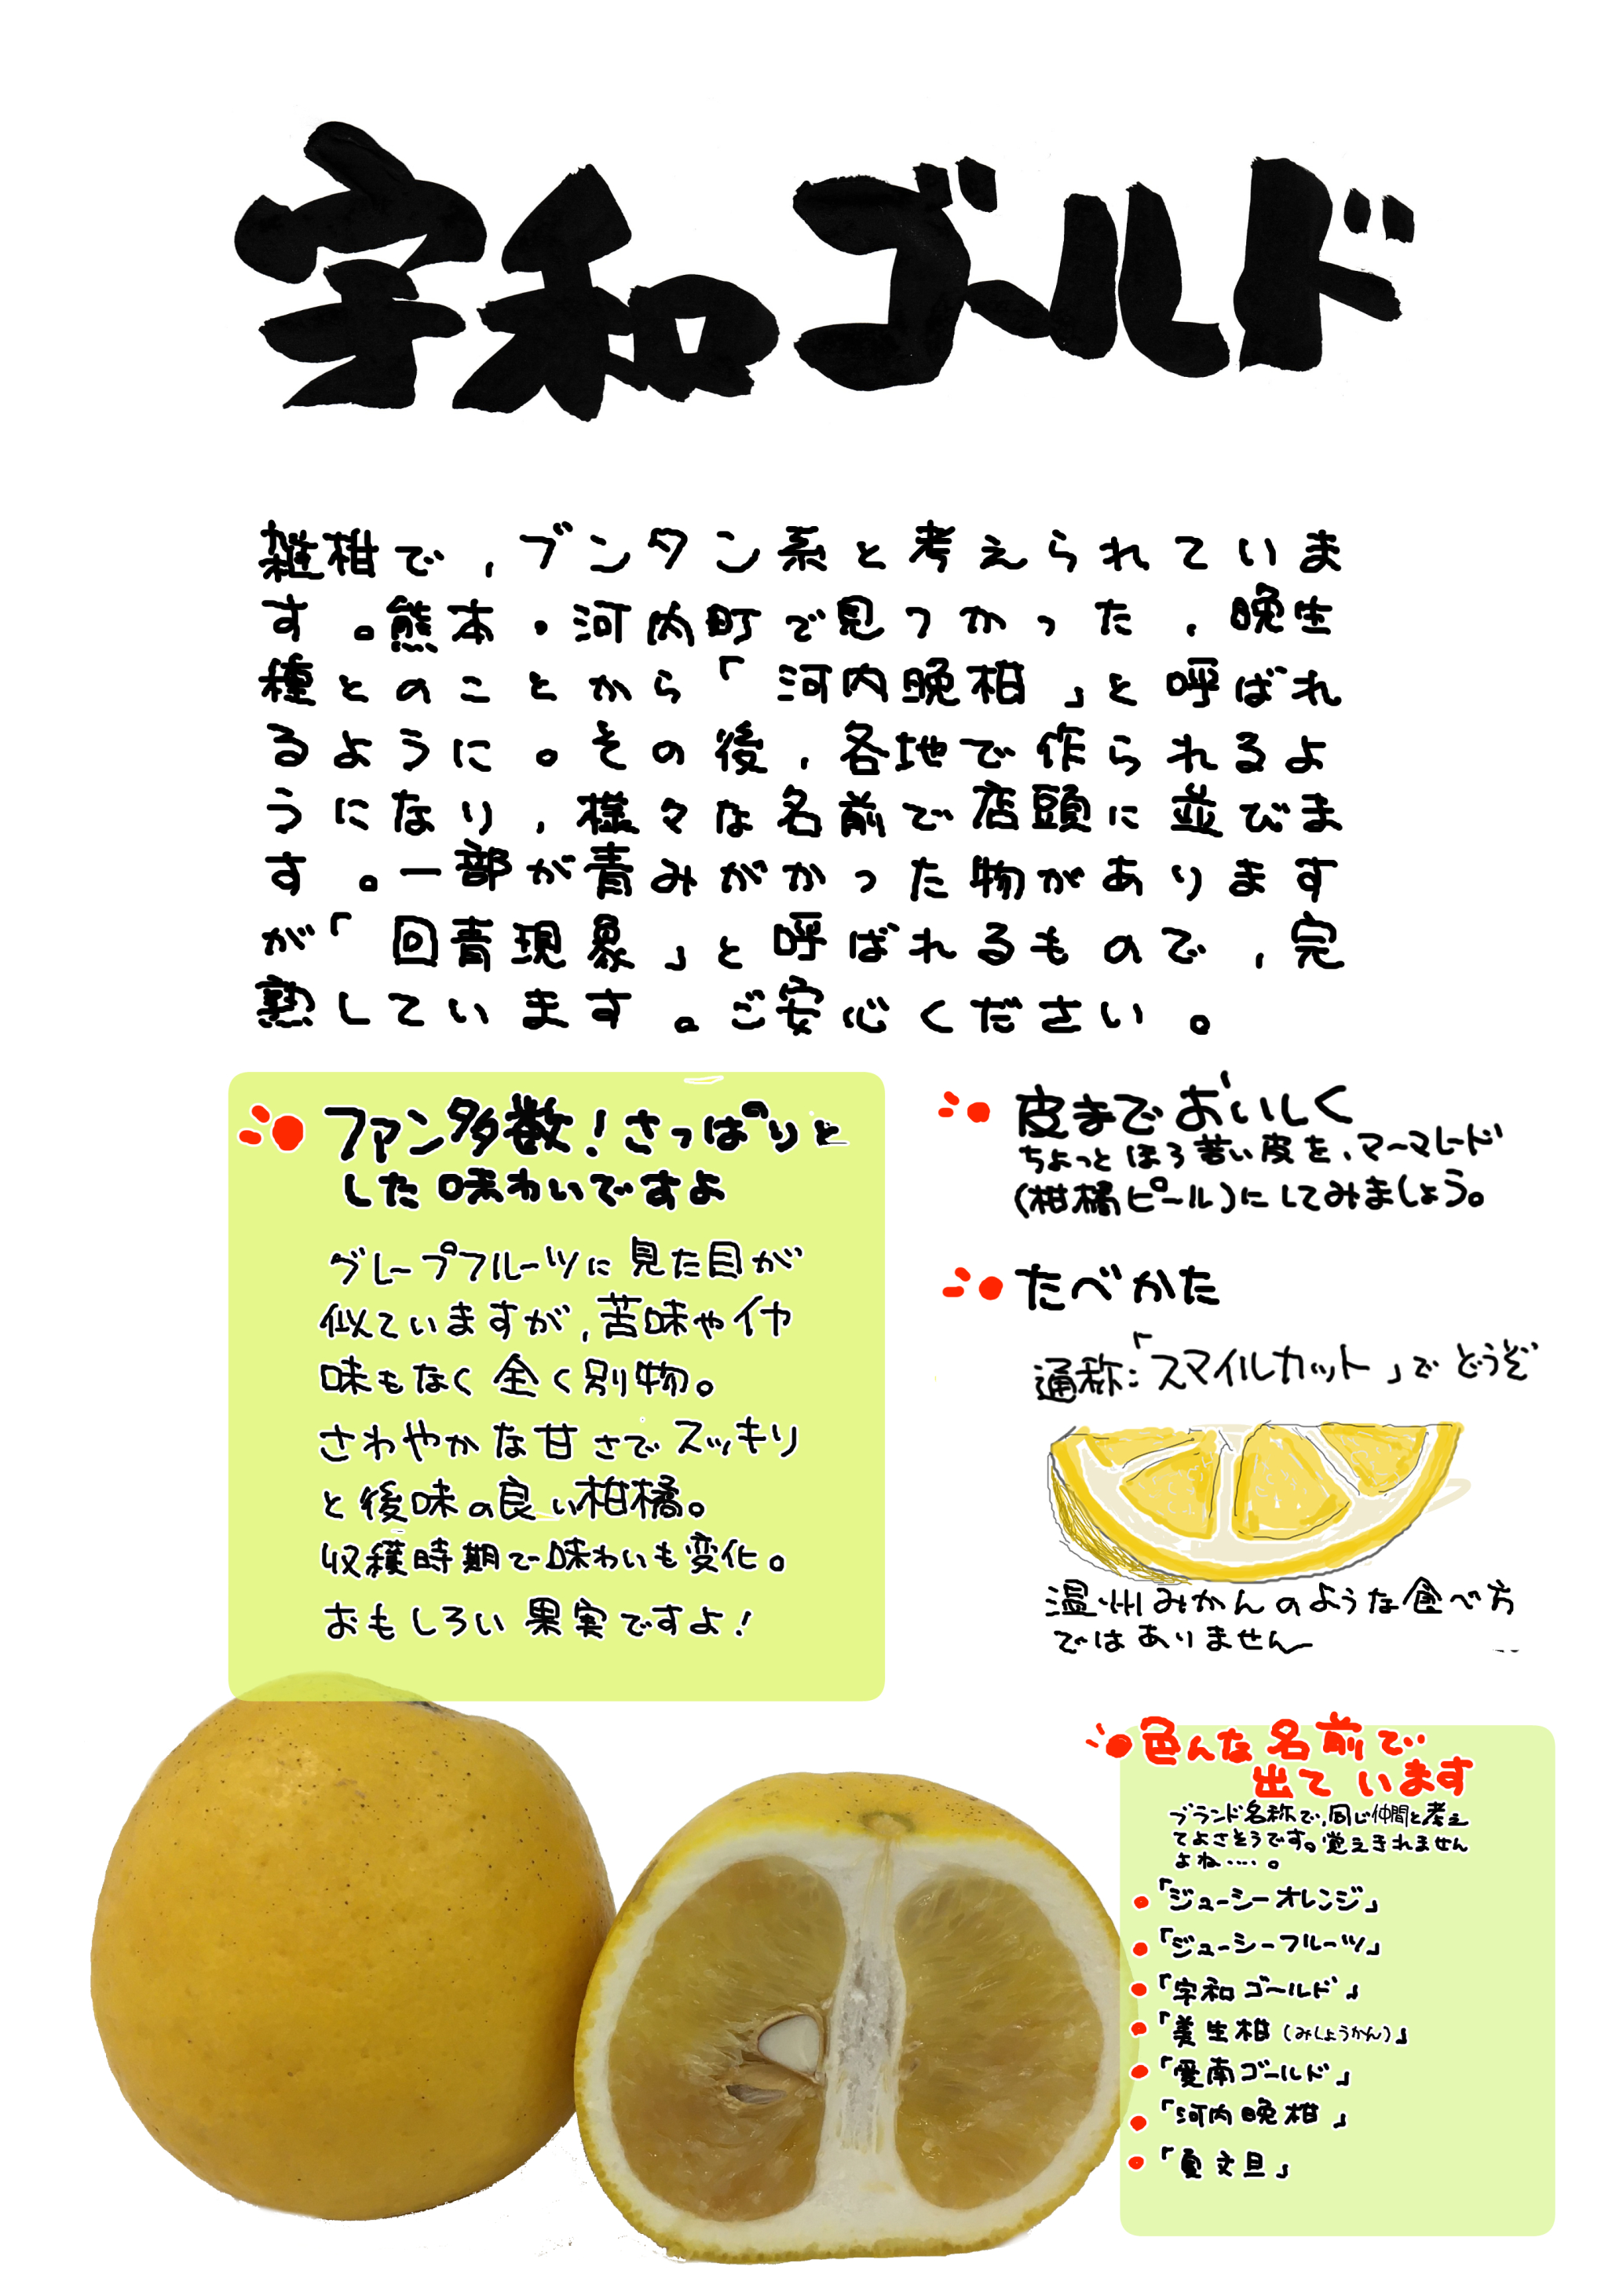 宇和ゴールド
雑柑で,ブンタン系と考えられていま
す。熊本・河内町で見つかった,晩生
種とのことから「河内晩柑」と呼ばれ
るように。その後,各地で作られるよ
うになり,様々な名前で店頭に並びま
す。一部が青みがかった物があります
が「回青現象」と呼ばれるもので,完
熟しています。ご安心ください。
ファン多数!さっぱりと
した味わいですよ
グレープフルーツに見た目が
似ていますが,苦味やイヤ
味もなく全く別物。
さわやかな甘さでスッキリ
と後味の良い柑橘。
収穫時期で味わいも変化。
おもしろい果実ですよ!
皮までおいしく
ちょっとほろ苦い皮を,マーマレード
(柑橘ピール)にしてみましょう。
たべかた
通称:「スマイルカット」でどうぞ
温州みかんのような食べ方
ではありません
色んな名前で
出ています
ブランド名称で,同じ仲間と考え
てよさそうです。覚えきれません
よね‥‥。
「ジューシーオレンジ」
「ジューシーフルーツ」
「宇和ゴールド」
「美生柑(みしょうかん)」
「愛南ゴールド」
「河内晩柑」
「夏文旦」